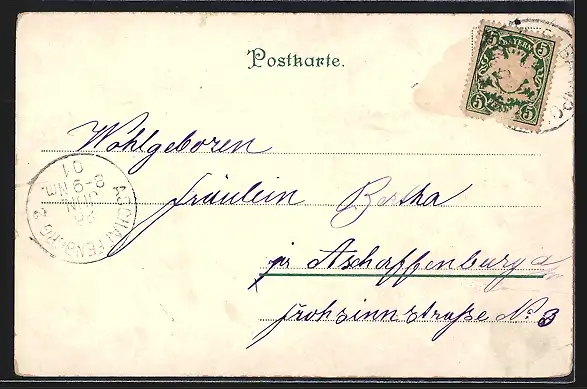 Postkarte.
BAYERN
5 5
5 5
Wohlgeboren
Fräulein Bertha
in Aschaffenburg a/
Frohsinnstraße No. 3
ASCHAFFENBURG 2
26
JUN.
8-9 Nm.
01